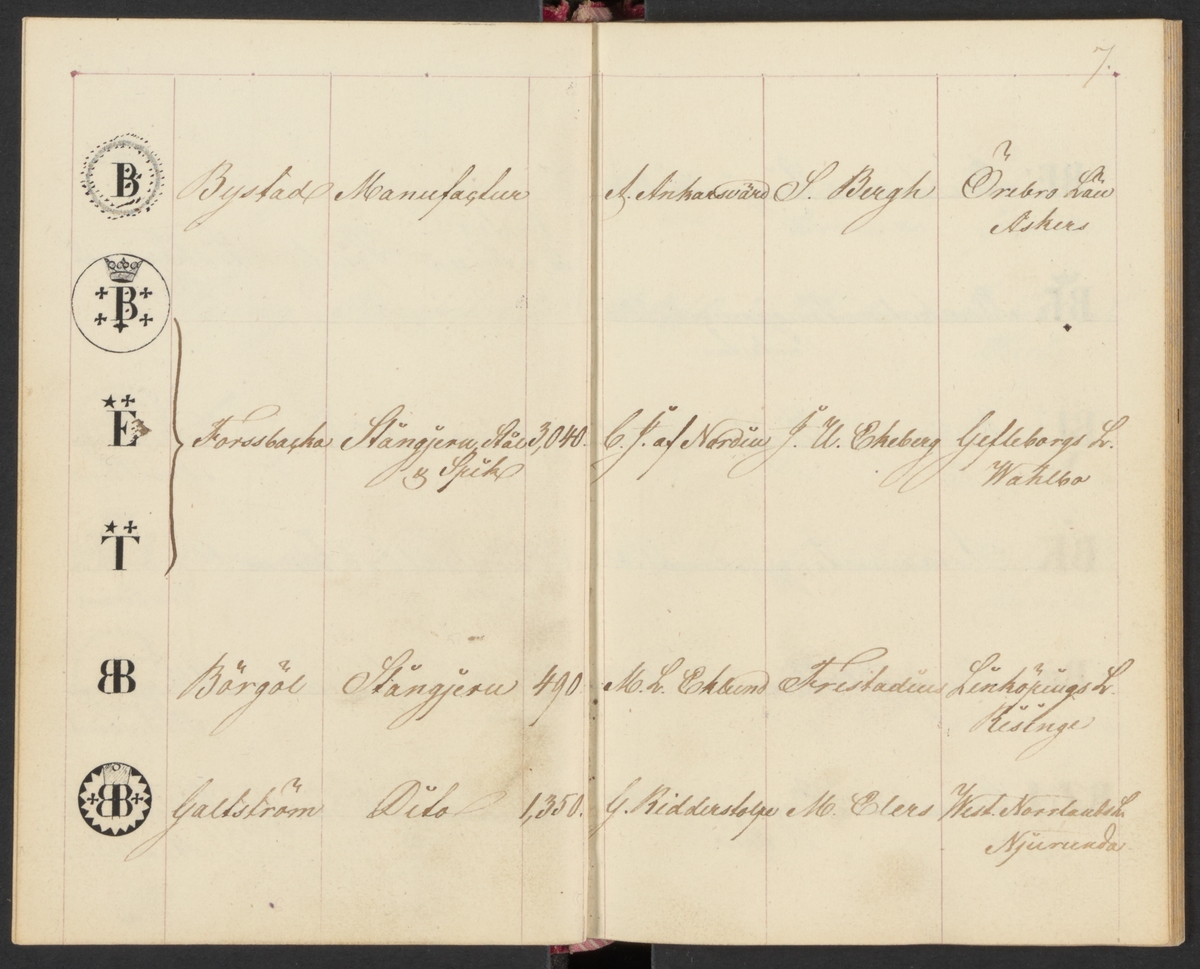 7.
B Bystad Manufactur A. Ankarsvärd S. Bergh Örebro Län
Askers
B
E Forssbacka Stångjern, Stål 3,040. C. J. af Nordin J. U. Ekeberg Gefleborgs L.
& Spik Wahlbo
T
BB Börgöl Stångjern 490 M. L. Eklund Fristadius Linköpings L.
Risinge
BB Galtström Dito 1,350. G. Ridderstolpe M. Elers West. Norrlands L.
Njurunda